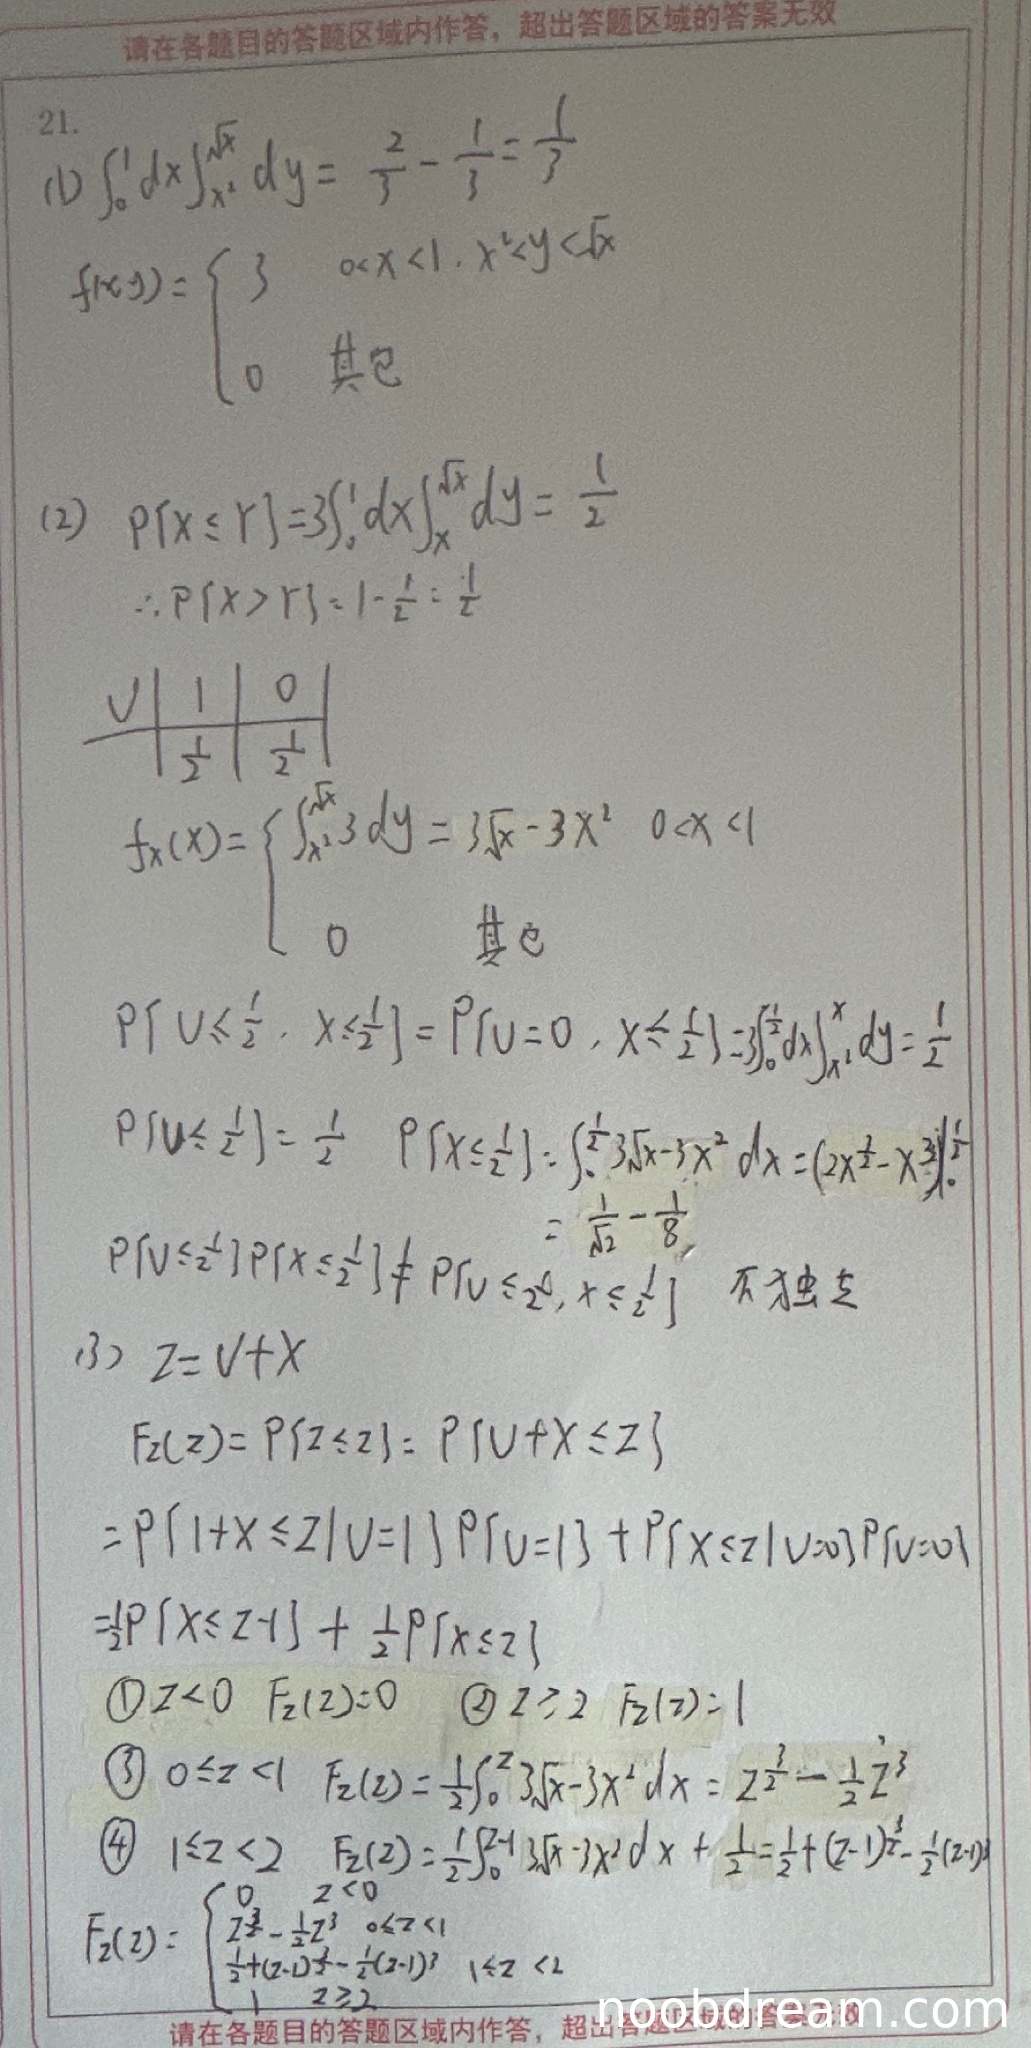 请在各题目的答题区域内作答，超出答题区域的答案无效
21.
(1) ∫₀¹dx∫_{x²}^{√x} dy = 2/3 - 1/3 = 1/3
f(x,y) = { 3 0<x<1, x²<y<√x
0 其它
(2) P{X≤Y}=3∫₀¹dx∫_x^{√x}dy = 1/2
∴P{X>Y}=1-1/2=1/2
U | 1 | 0 |
| 1/2 | 1/2 |
f_X(x)= { ∫_{x²}^{√x} 3dy = 3√x-3x² 0<x<1
0 其它
P{U≤1/2, X≤1/2} = P{U=0, X≤1/2}=3∫₀^{1/2}dx∫_{x²}^{x}dy=1/2
P{U≤1/2}=1/2 P{X≤1/2}=∫₀^{1/2}3√x-3x² dx=(2x^{3/2}-x³)|₀^{1/2}
= 1/√2 - 1/8
P{U≤1/2}P{X≤1/2}≠P{U≤1/2, X≤1/2} 不独立
(3) Z=U+X
F_Z(z)=P{Z≤z}=P{U+X≤z}
=P{1+X≤z|U=1}P{U=1}+P{X≤z|U=0}P{U=0}
=1/2P{X≤z-1}+1/2P{X≤z}
① z<0 F_Z(z)=0 ② z≥2 F_Z(z)=1
③ 0≤z<1 F_Z(z)=1/2∫₀^z 3√x-3x²dx=z^{3/2}-1/2z³
④ 1≤z<2 F_Z(z)=1/2∫₀^{z-1}3√x-3x²dx+1/2=1/2+(z-1)^{3/2}-1/2(z-1)³
F_Z(z)= { 0 z<0
z^{3/2}-1/2z³ 0≤z<1
1/2+(z-1)^{3/2}-1/2(z-1)³ 1≤z<2
1 z≥2
noobdream.com
请在各题目的答题区域内作答，超出答题区域的答案无效